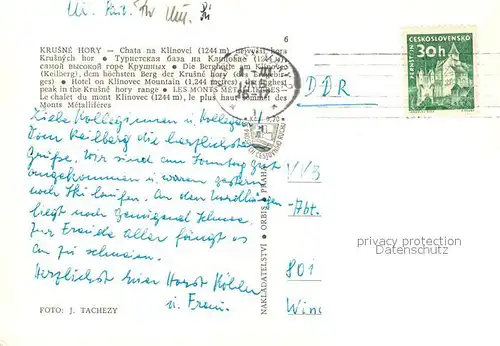 6
KRUŠNÉ HORY — Chata na Klínovci (1244 m), nejvyšší hora
Krušných hor ● Туристская база на Клиновце (1244 м),
самой высокой горе Крушных ● Die Berghütte am Klínovec
(Keilberg), dem höchsten Berg der Krušné hory
ges) ● Hotel on Klínovec Mountain (1,244 metres), the highest
peak in the Krušné hory range ● LES MONTS MÉTALLIFÈRES
Le chalet du mont Klínovec (1244 m), le plus haut sommet des
Monts Métallifères
ČESKOSLOVENSKO
30h
PERNŠTEJN
DDR
Liebe Kolleginnen u. Kollegen!
Vom Keilberg die herzlichsten
Grüße. Wir sind am Sonntag gut
angekommen u. waren gestern
noch Ski laufen. An den Nordhängen
liegt noch genügend Schnee.
Zur Freude aller fängt es
an zu schneien.
Herzlichst Euer Horst Köhler
u. Frau.
VVB
Abt.
801
NAKLADATELSTVÍ ● ORBIS ● PRAHA
FOTO: J. TACHEZY
privacy protection
Datenschutz